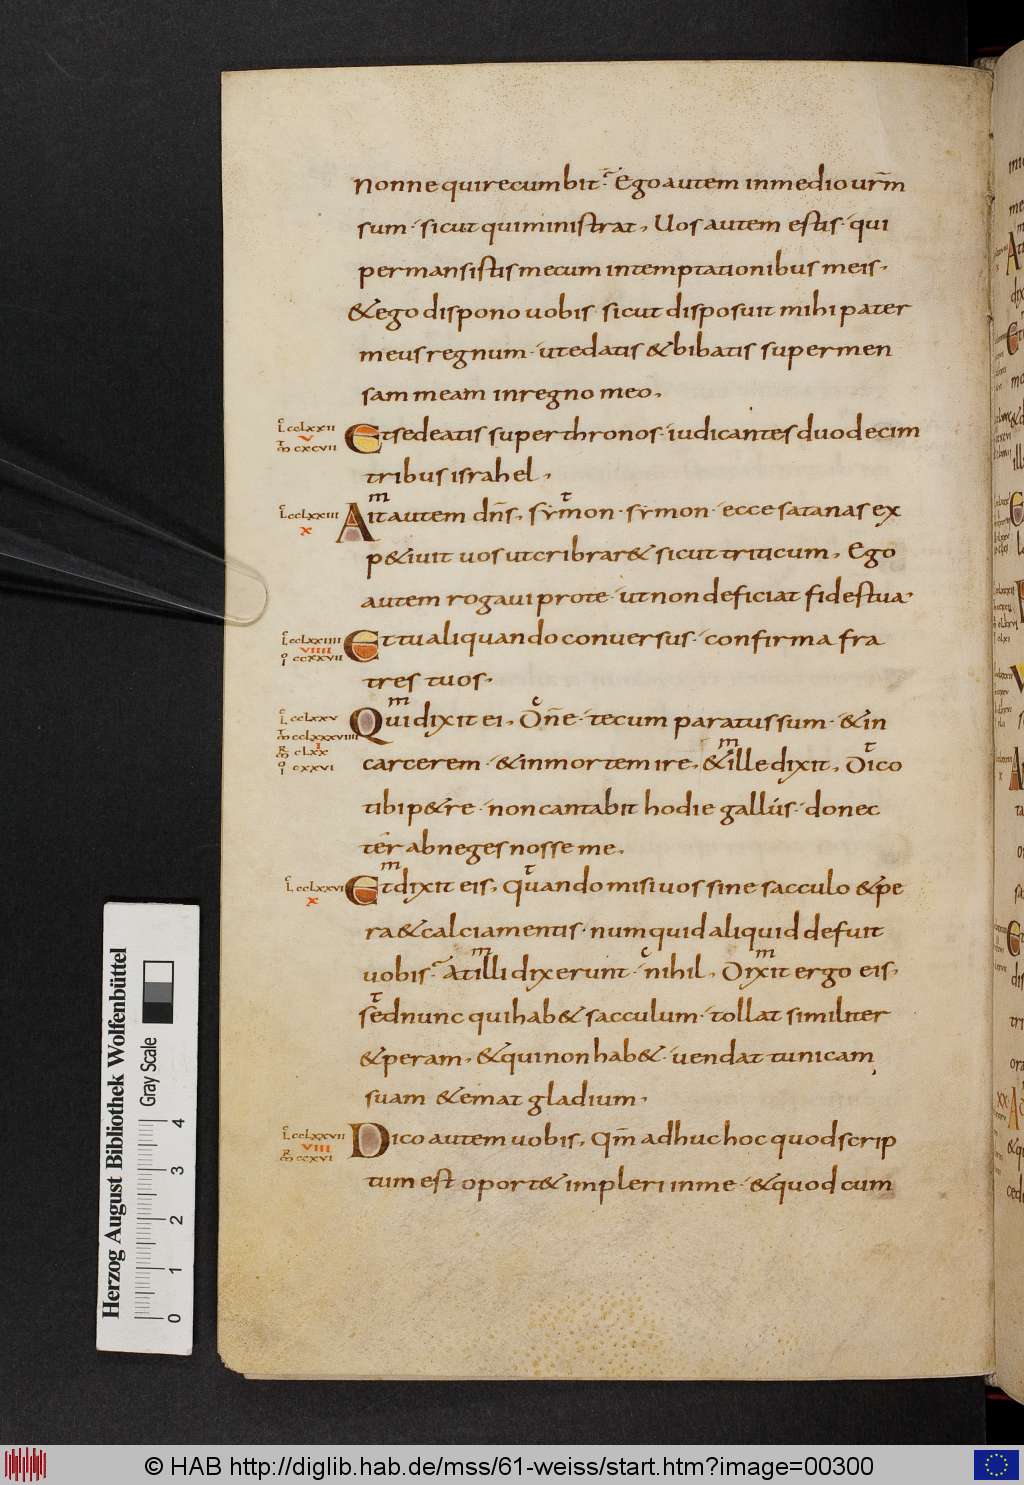 nonne qui recumbit· Ego autem in medio urm̄
sum· sicut qui ministrat, Uos autem estis· qui
permansistis mecum in temptationibus meis,
& ego dispono uobis· sicut disposuit mihi pater
meus regnum· ut edatis & bibatis super men
sam meam in regno meo,
L cclxxii
V
M cxcvii
Et sedeatis super thronos· iudicantes duodecim
tribus israhel,
L cclxxiii
X
Ait autem dn̄s, symon· symon· ecce satanas ex
p&iuit uos ut cribrar& sicut triticum, Ego
autem rogaui pro te· ut non deficiat fides tua·
L cclxxiiii
VIIII
Io ccxxvii
Et tu aliquando conuersus· confirma fra
tres tuos,
L cclxxv
M cclxxxviiii
I
MR clxx
Io cxxvi
Qui dixit ei, Dn̄e· tecum paratus sum· & in
carcerem· & in mortem ire, & ille dixit, Dico
tibi p&re· non cantabit hodie gallus· donec
ter abneges nosse me,
L cclxxvi
X
Et dixit eis, quando misi uos sine sacculo & pe
ra & calciamentis· numquid aliquid defuit
uobis· at illi dixerunt· nihil, Dixit ergo eis,
sed nunc qui hab& sacculum· tollat similiter
& peram, & qui non hab&· uendat tunicam
suam & emat gladium,
L cclxxvii
VIII
MR ccxvi
Dico autem uobis, qm̄ adhuc hoc quod scrip
tum est oport& impleri in me· & quod cum
Herzog August Bibliothek Wolfenbüttel
Gray Scale
0 1 2 3 4
© HAB http://diglib.hab.de/mss/61-weiss/start.htm?image=00300